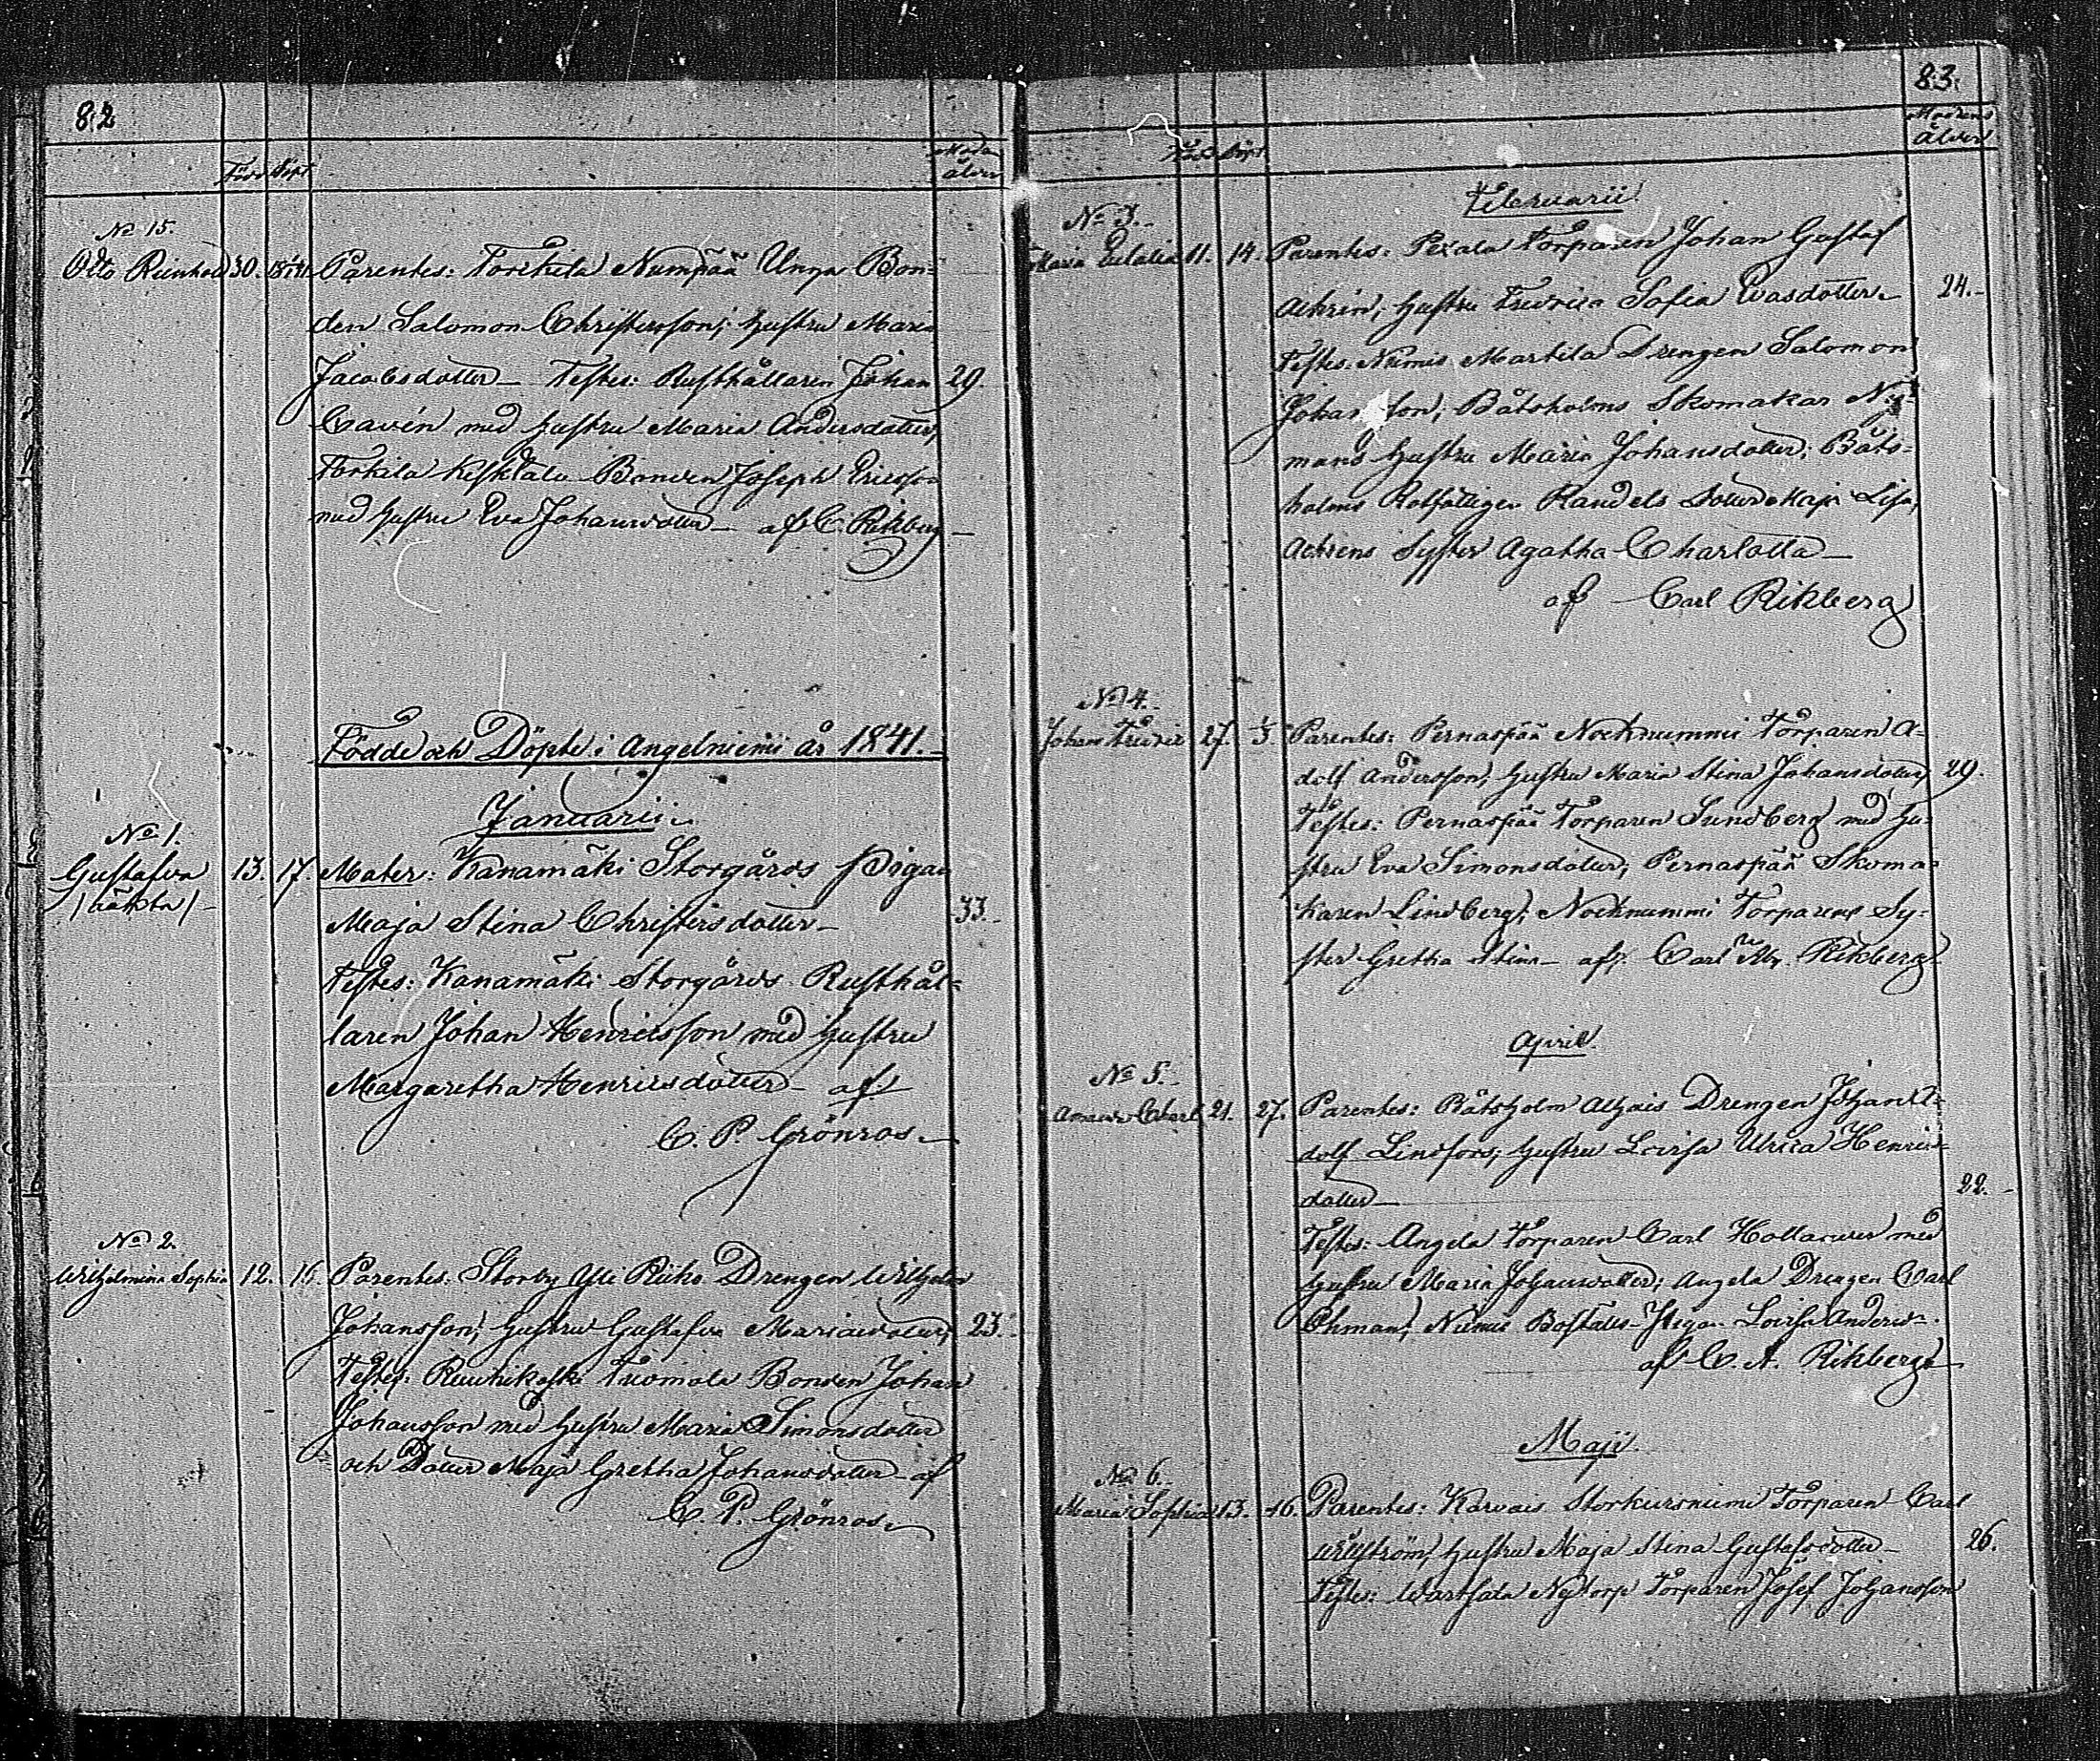 82
Född Döpt
Modr. ålder
No 15.
Otto Reinhold 30. Parentes: Torkila Numpää Unga Bon=
den Salomon Christersson; hustru Maria
Jacobsdotter_ Testes: Rusthållaren Johan 29.
Cavén med hustru Maria Andersdotter,
Torkila Bonden Joseph Ericsson
med hustru Eva Johansdotter_ af C. Rikberg_
Födde och Döpte i Angelniemi år 1841._
Januarii.
No 1.
Gustafva 13. 17. Mater: Kanamäki Storgårds Pigan
/oäkta/
Maja Stina Christersdotter_ 33._
Testes: Kanamäki Storgårds Rusthål=
laren Johan Henricsson med hustru
Margaretha Henricsdotter_ af
C. P. Grönros._
No 2.
Wilhelmina Sophia 12. Parentes. Storby Yli Riiko Drengen Wilhelm
Johansson; hustru Gustafva Mariaedotter; 23._
Testes. Ruuhikoski Tuomola Bonden Johan
Johansson med hustru Maria Simonsdotter
och Dotter Maja Gretha Johansdotter_ af
C. P. Grönros._
83.
Född Döpt.
Modrens ålder
Februarii
No 3._
Maria Eulalia 11. 14. Parentes: Torparen Johan Gustaf
Achrén; hustru Fredrica Sofia Evasdotter_ 24._
Testes. Niemis Martila Drengen Salomon
Johansson; Båtsholms Skomakar Ny=
mans hustru Maria Johansdotter; Båts=
holms Rotfattigen Randels dotter Maja Lisa;
Achrens Syster Agatha Charlotta_
af Carl Rikberg
No 4._
Johan Fredric 27. 1/3. Parentes: Pernaspää Nocknummi Torparen A=
dolf Andersson; hustru Maria Stina Johansdotter, 29.
Testes: Pernaspää Torparen Sundberg med hu=
stru Eva Simonsdotter; Pernaspää Skoma=
karen Lindberg; Nocknummi Torparens Sy=
ster Gretha Stina_ af: Carl Rikberg.
April
No 5._
Carl 21. 27. Parentes: Båtsholm Drengen Johan A=
dolf Lindfors; hustru Lovisa Ulrica Henrics=
dotter_ 22._
Testes: Angela Torparen Carl med
hustru Maria Johansdotter; Angela Drengen Carl
Öhman; Niemis Lovisa
af C. A. Rikberg_
Maji
No 6._
Maria Sophia 13. 16. Parentes: Karvais Torparen Carl
hustru Maja Stina Gustafsdotter_ 26.
Testes: Wartsala Nytorp Torparen Josef Johansson